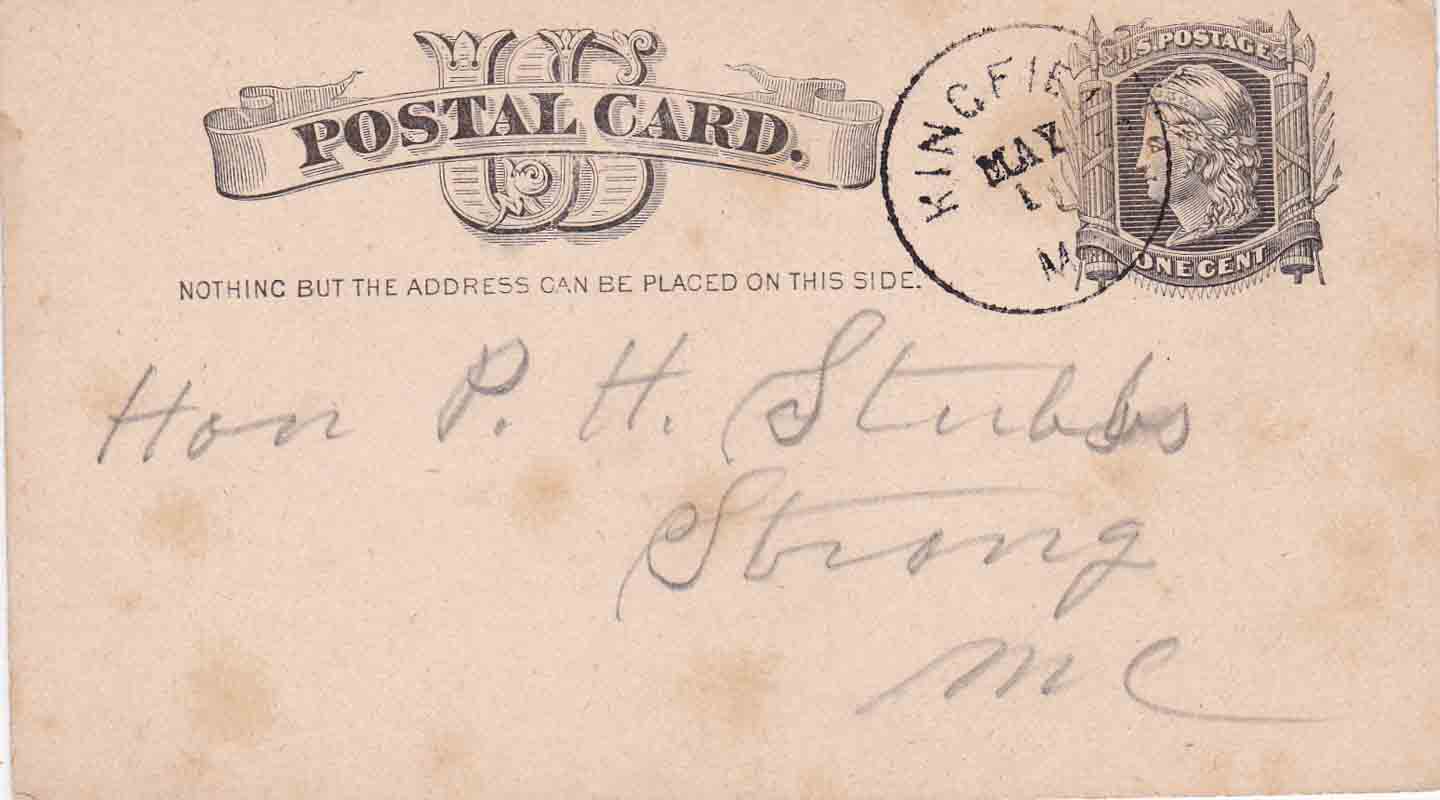 US
POSTAL CARD.
U.S. POSTAGE
ONE CENT
KINGFI
MAY
11
M
NOTHING BUT THE ADDRESS CAN BE PLACED ON THIS SIDE.
Hon P. H. Stubbs
Strong
Me